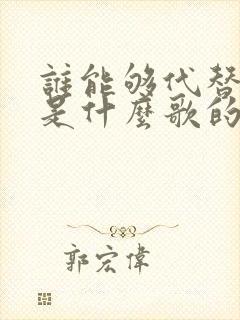 誰能够代替
是什麼歌的
郭宏偉